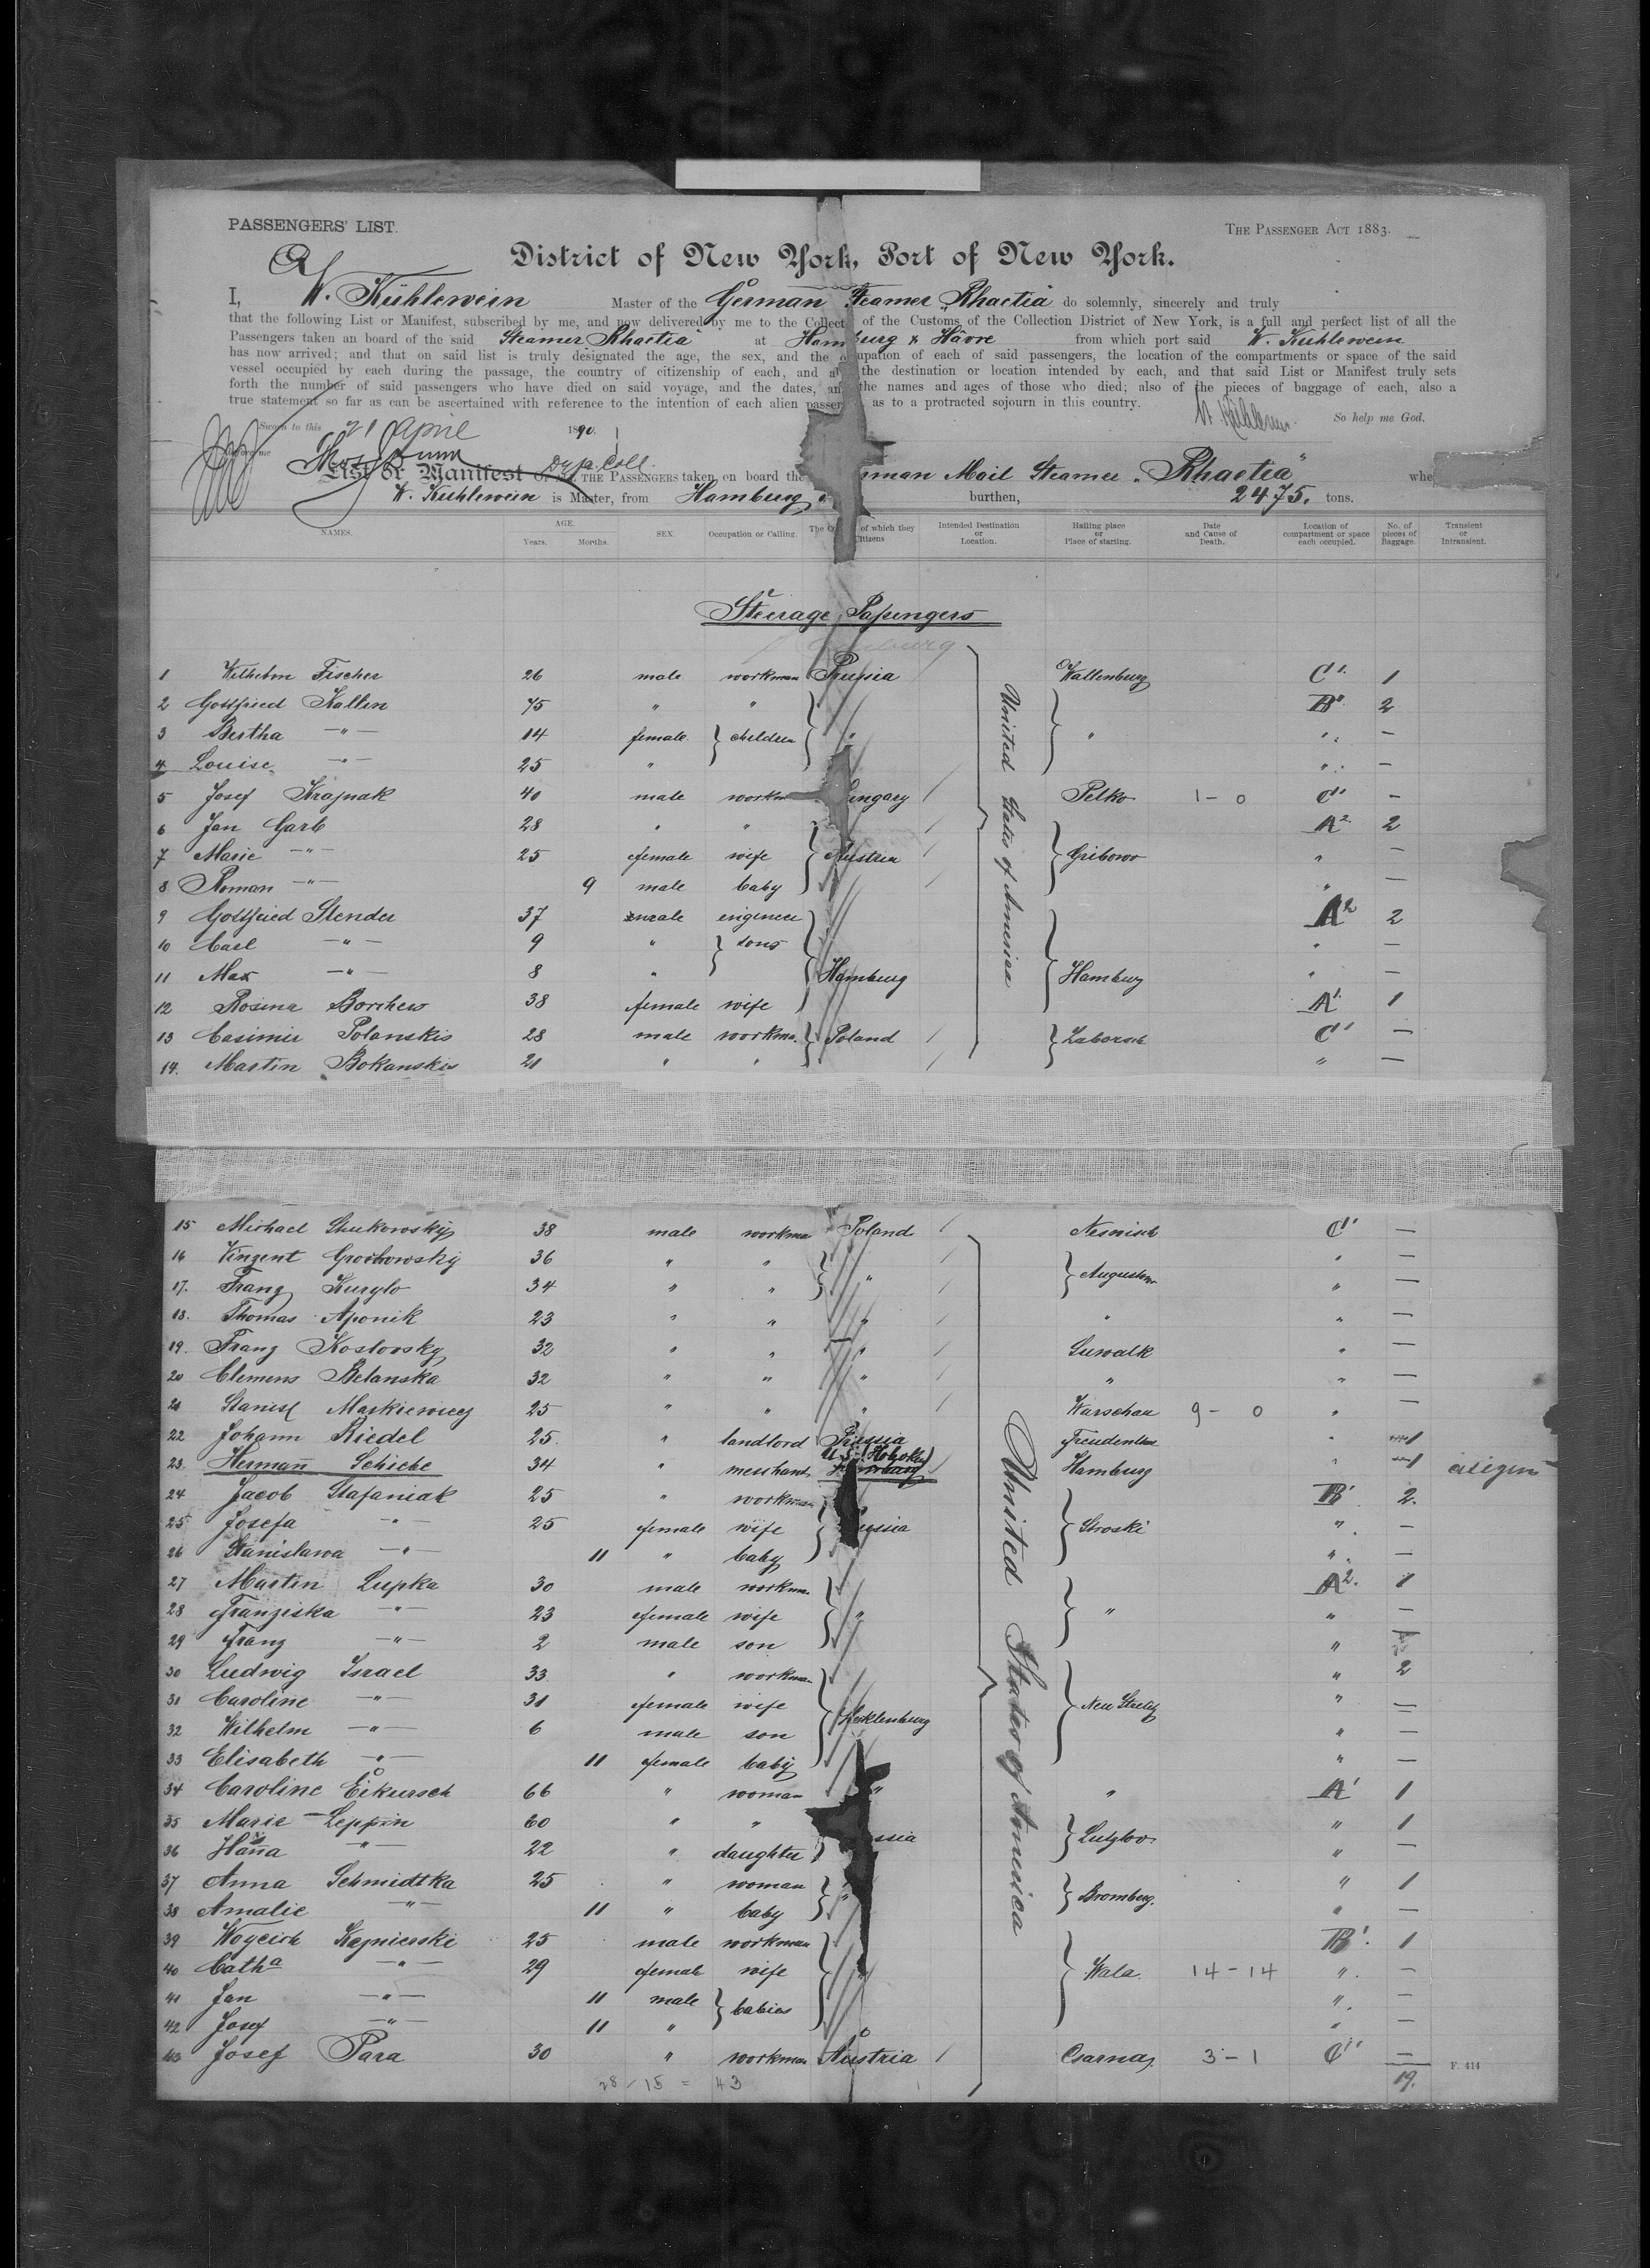 PASSENGERS' LIST.
THE PASSENGER ACT 1883.
District of New York, Port of New York.
I, W. Kühlewein Master of the German Steamer Rhaetia do solemnly, sincerely and truly
that the following List or Manifest, subscribed by me, and now delivered by me to the Collect of the Customs of the Collection District of New York, is a full and perfect list of all the
Passengers taken an board of the said Steamer Rhaetia at Hamburg & Hâvre from which port said W. Kühlewein
has now arrived; and that on said list is truly designated the age, the sex, and the upation of each of said passengers, the location of the compartments or space of the said
vessel occupied by each during the passage, the country of citizenship of each, and a the destination or location intended by each, and that said List or Manifest truly sets
forth the number of said passengers who have died on said voyage, and the dates, an the names and ages of those who died; also of the pieces of baggage of each, also a
true statement so far as can be ascertained with reference to the intention of each alien passer as to a protracted sojourn in this country.
So help me God.
Sworn to this 21 April 1890.
Thos Dunn Dep. Coll.
List or Manifest OF ALL THE PASSENGERS taken on board the rman Mail Steamer "Rhaetia" whe
W. Kühlewein is Master, from Hamburg burthen, 2475. tons.
NAMES. AGE. Years. Months. SEX. Occupation or Calling. The Co of which they itizens Intended Destination or Location. Hailing place or Place of starting. Date and Cause of Death. Location of compartment or space each occupied. No. of pieces of Baggage. Transient or Intransient.
Steerage Passengers
United States of America
1 Wilhelm Fischer 26 male workman Prussia Wallenburg C' 1
2 Gottfried Kallen 45 " " B' 2
3 Bertha —"— 14 female children " " " —
4 Louise —"— 25 " " —
5 Josef Krajnak 40 male workm ungary Pelko 1 - 0 C' —
6 Jan Garb 28 " " A2 2
7 Marie —"— 25 female wife Austria Gribowo " —
8 Roman —"— 9 male baby " —
9 Gottfried Stender 37 male engineer A2 2
10 Carl —"— 9 " sons " —
11 Max —"— 8 " Hamburg Hamburg " —
12 Rosina Borchers 38 female wife A' 1
13 Casimir Polanskis 28 male workma. Poland Zaborsch C' —
14. Martin Bokanskis 21 " " " —
15 Michael Shukowsky 38 male workma Poland Nesnisch C' —
16 Vinzent Grochowsky 36 " " " —
17. Franz Kurylo 34 " " " Augustow " —
18. Thomas Aponik 23 " " " " " —
19. Franz Koslovsky 32 " " " Suwalk " —
20 Clemens Belanska 32 " " " " " —
21 Stanisl Markiewicz 25 " " " Warschau 9 - 0 " —
22 Johann Riedel 25. " landlord Prussia " 1
23. Hermann Schiebe 34 " merchant U.S. (Hoboken) Hamburg " 1
24 Jacob Stafaniak 25 " workman B' 2.
25 Josefa —"— 25 female wife ussia Stroski " —
26 Stanislawa —"— 11 " baby " —
27 Martin Lupka 30 male workm. A2. 1
28 Franziska —"— 23 female wife " " " —
29 Franz —"— 2 male son "
30 Ludwig Israel 33. " workman " 2
31 Caroline —"— 31 female wife Mecklenburg Neu Strelitz " —
32 Wilhelm —"— 6 male son " —
33 Elisabeth —"— 11 female baby " —
34 Caroline Eikursch 66 " woman " " A' 1
35 Marie Leppin 60 " " ssia Lutzlow " 1
36 Hanna —"— 22 " daughter " —
37 Anna Schmidtka 25 " woman " Bromberg. " 1
38 Amalie —"— 11 " baby " —
39 Woyciech Kapnierski 25 male workman B'. 1
40 Catha —"— 29 female wife " Wala. 14 - 14 " —
41 Jan —"— 11 male babies " —
42 Josef —"— 11 " " —
43 Josef Para 30 " workman Austria Csarnas 3 - 1 C' —
United States of America
28 / 15 = 43
19.
F. 414